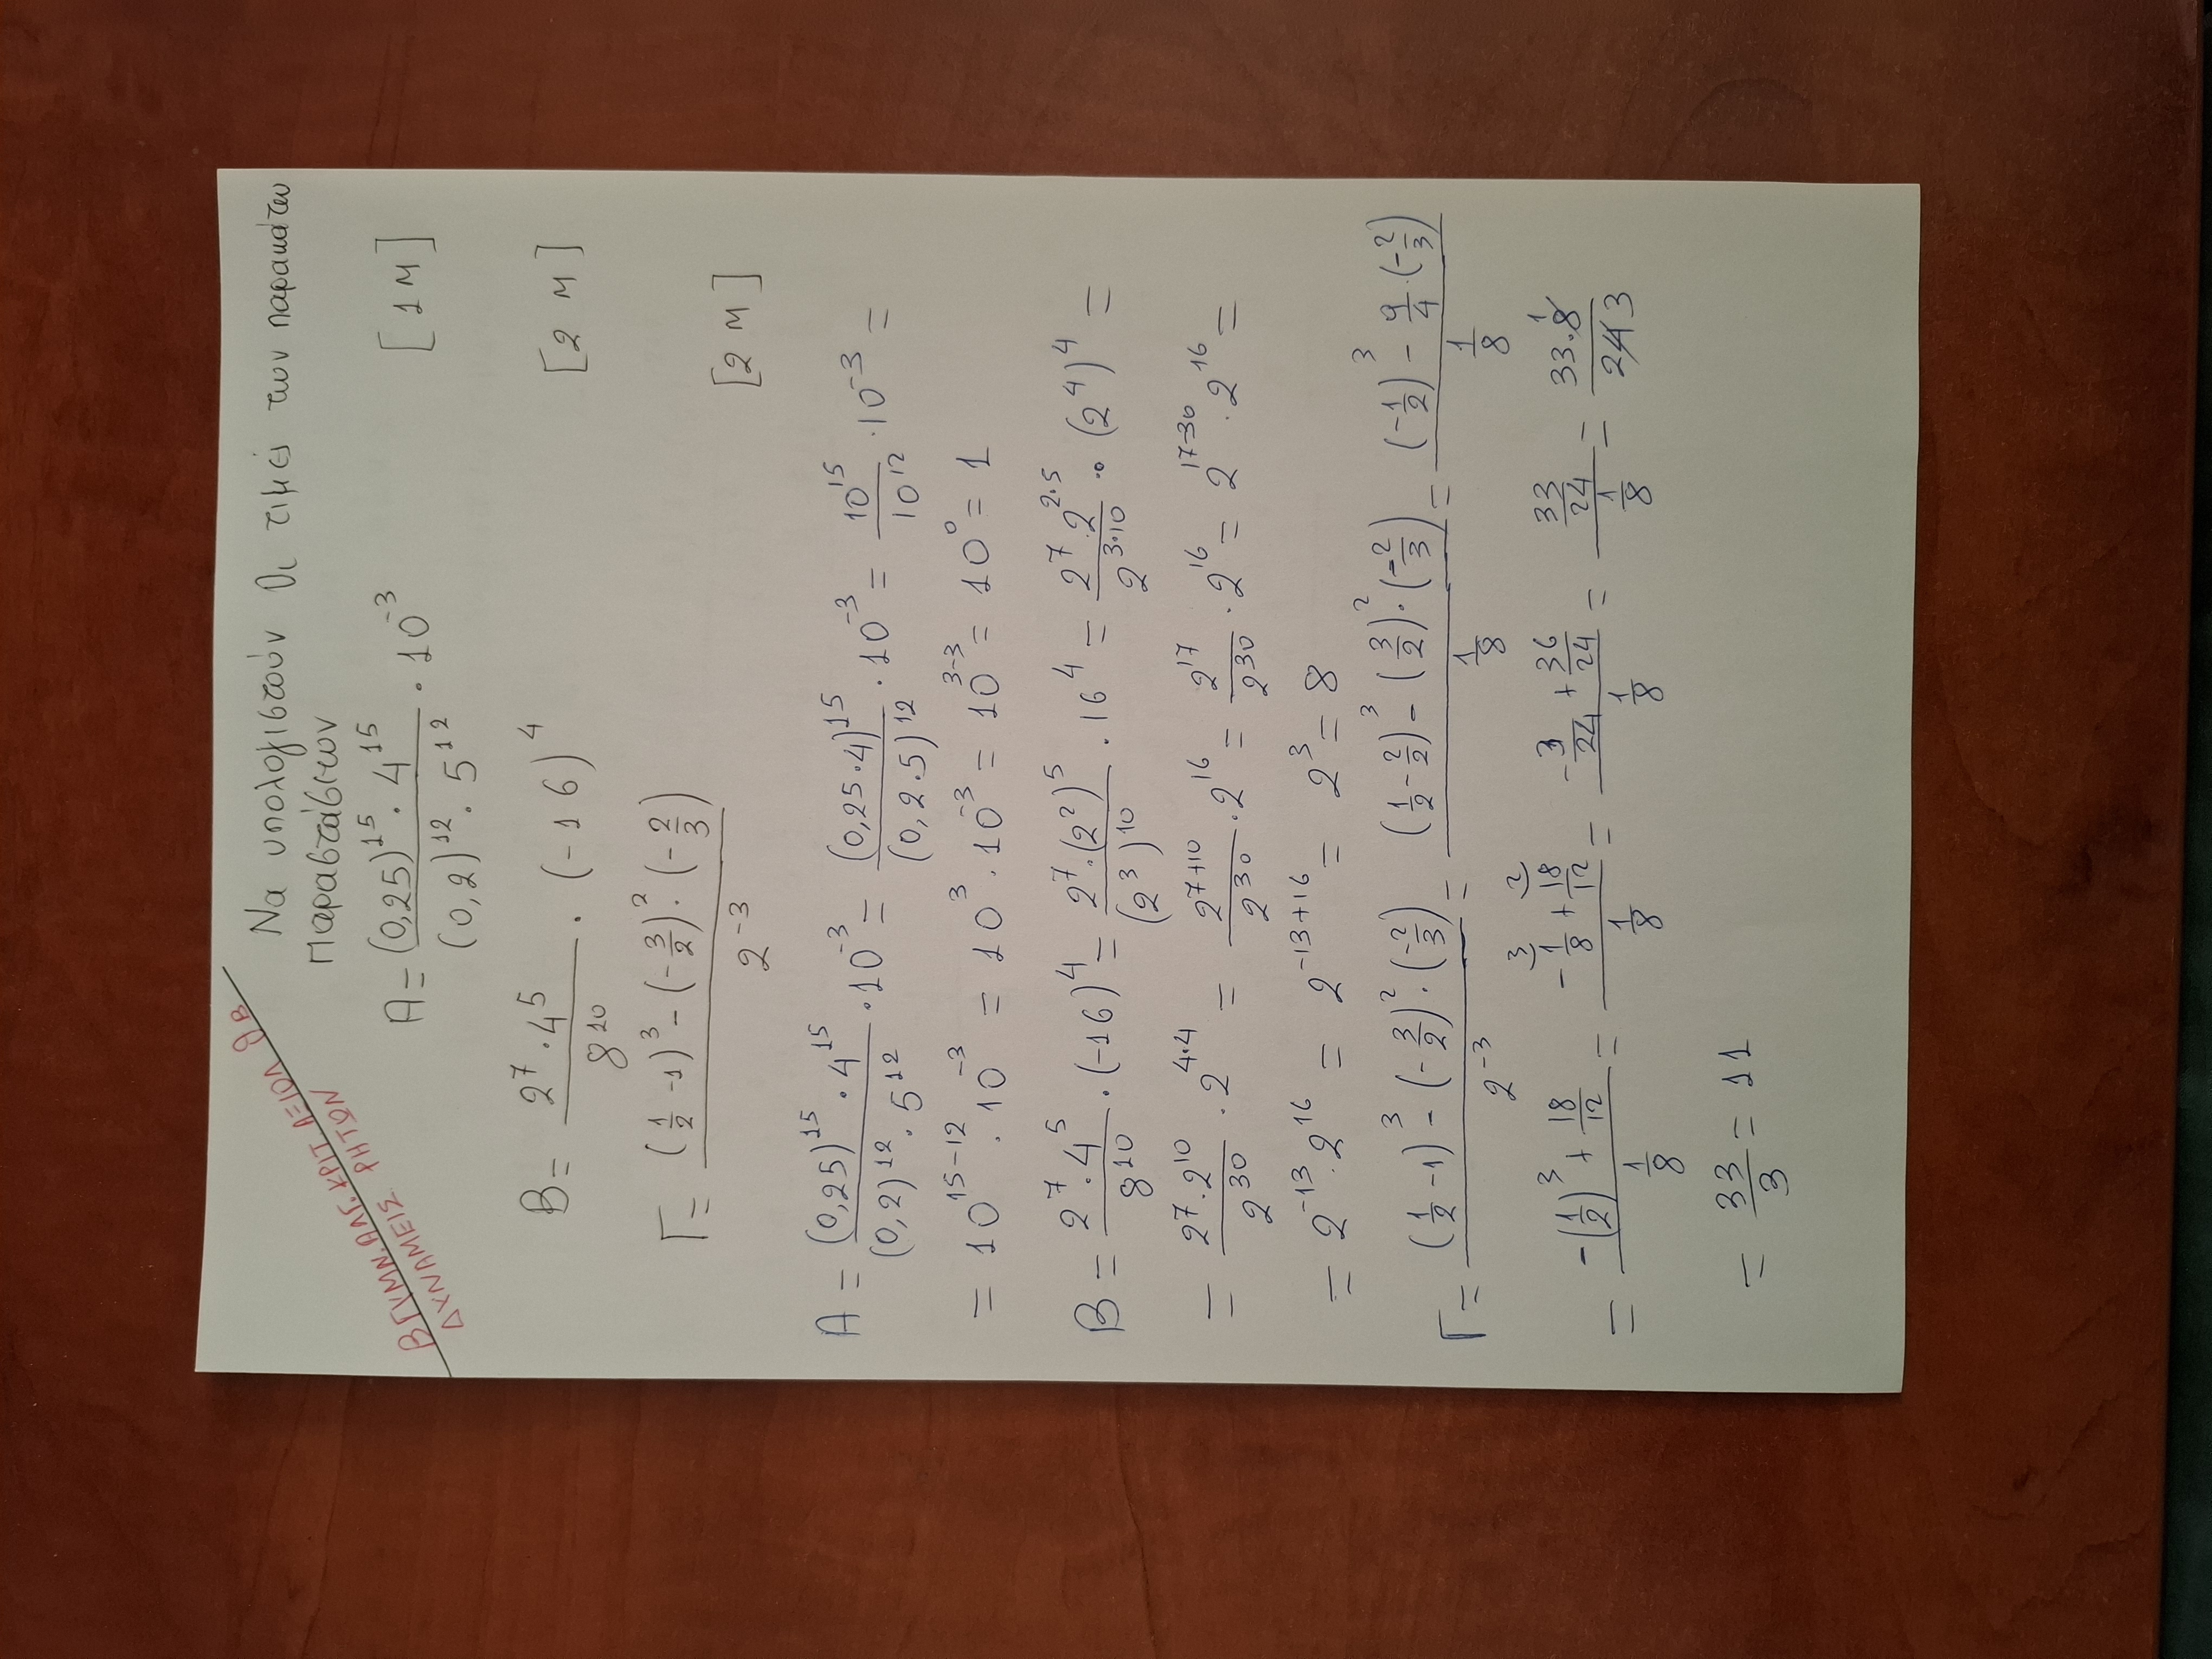 Β ΓΥΜΝ. ΑΛΓ. ΚΡΙΤ ΑΞΙΟΛ 9Β
ΔΥΝΑΜΕΙΣ ΡΗΤΩΝ
Να υπολογιστούν Οι τιμές των παρακάτω
παραστάσεων
Α = \frac{(0,25)^{15} · 4^{15}}{(0,2)^{12} · 5^{12}} · 10^{-3} [1 Μ]
Β = \frac{2^7 · 4^5}{8^{10}} · (-16)^4 [2 Μ]
Γ = \frac{(\frac{1}{2} - 1)^3 - (-\frac{3}{2})^2 · (-\frac{2}{3})}{2^{-3}} [2 Μ]
Α = \frac{(0,25)^{15} · 4^{15}}{(0,2)^{12} · 5^{12}} · 10^{-3} = \frac{(0,25·4)^{15}}{(0,2·5)^{12}} · 10^{-3} = \frac{10^{15}}{10^{12}} · 10^{-3} =
= 10^{15-12} · 10^{-3} = 10^3 · 10^{-3} = 10^{3-3} = 10^0 = 1
Β = \frac{2^7 · 4^5}{8^{10}} · (-16)^4 = \frac{2^7 · (2^2)^5}{(2^3)^{10}} · 16^4 = \frac{2^7 · 2^{2·5}}{2^{3·10}} · (2^4)^4 =
= \frac{2^7 · 2^{10}}{2^{30}} · 2^{4·4} = \frac{2^{7+10}}{2^{30}} · 2^{16} = \frac{2^{17}}{2^{30}} · 2^{16} = 2^{17-30} · 2^{16} =
= 2^{-13} · 2^{16} = 2^{-13+16} = 2^3 = 8
Γ = \frac{(\frac{1}{2} - 1)^3 - (-\frac{3}{2})^2 · (-\frac{2}{3})}{2^{-3}} = \frac{(\frac{1}{2} - \frac{2}{2})^3 - (\frac{3}{2})^2 · (-\frac{2}{3})}{\frac{1}{8}} = \frac{(-\frac{1}{2})^3 - \frac{9}{4} · (-\frac{2}{3})}{\frac{1}{8}}
= \frac{-(\frac{1}{2})^3 + \frac{18}{12}}{\frac{1}{8}} = \frac{-\overset{3}{\frac{1}{8}} + \overset{2}{\frac{18}{12}}}{\frac{1}{8}} = \frac{-\frac{3}{24} + \frac{36}{24}}{\frac{1}{8}} = \frac{\frac{33}{24}}{\frac{1}{8}} = \frac{33·8 1}{24 3}
= \frac{33}{3} = 11